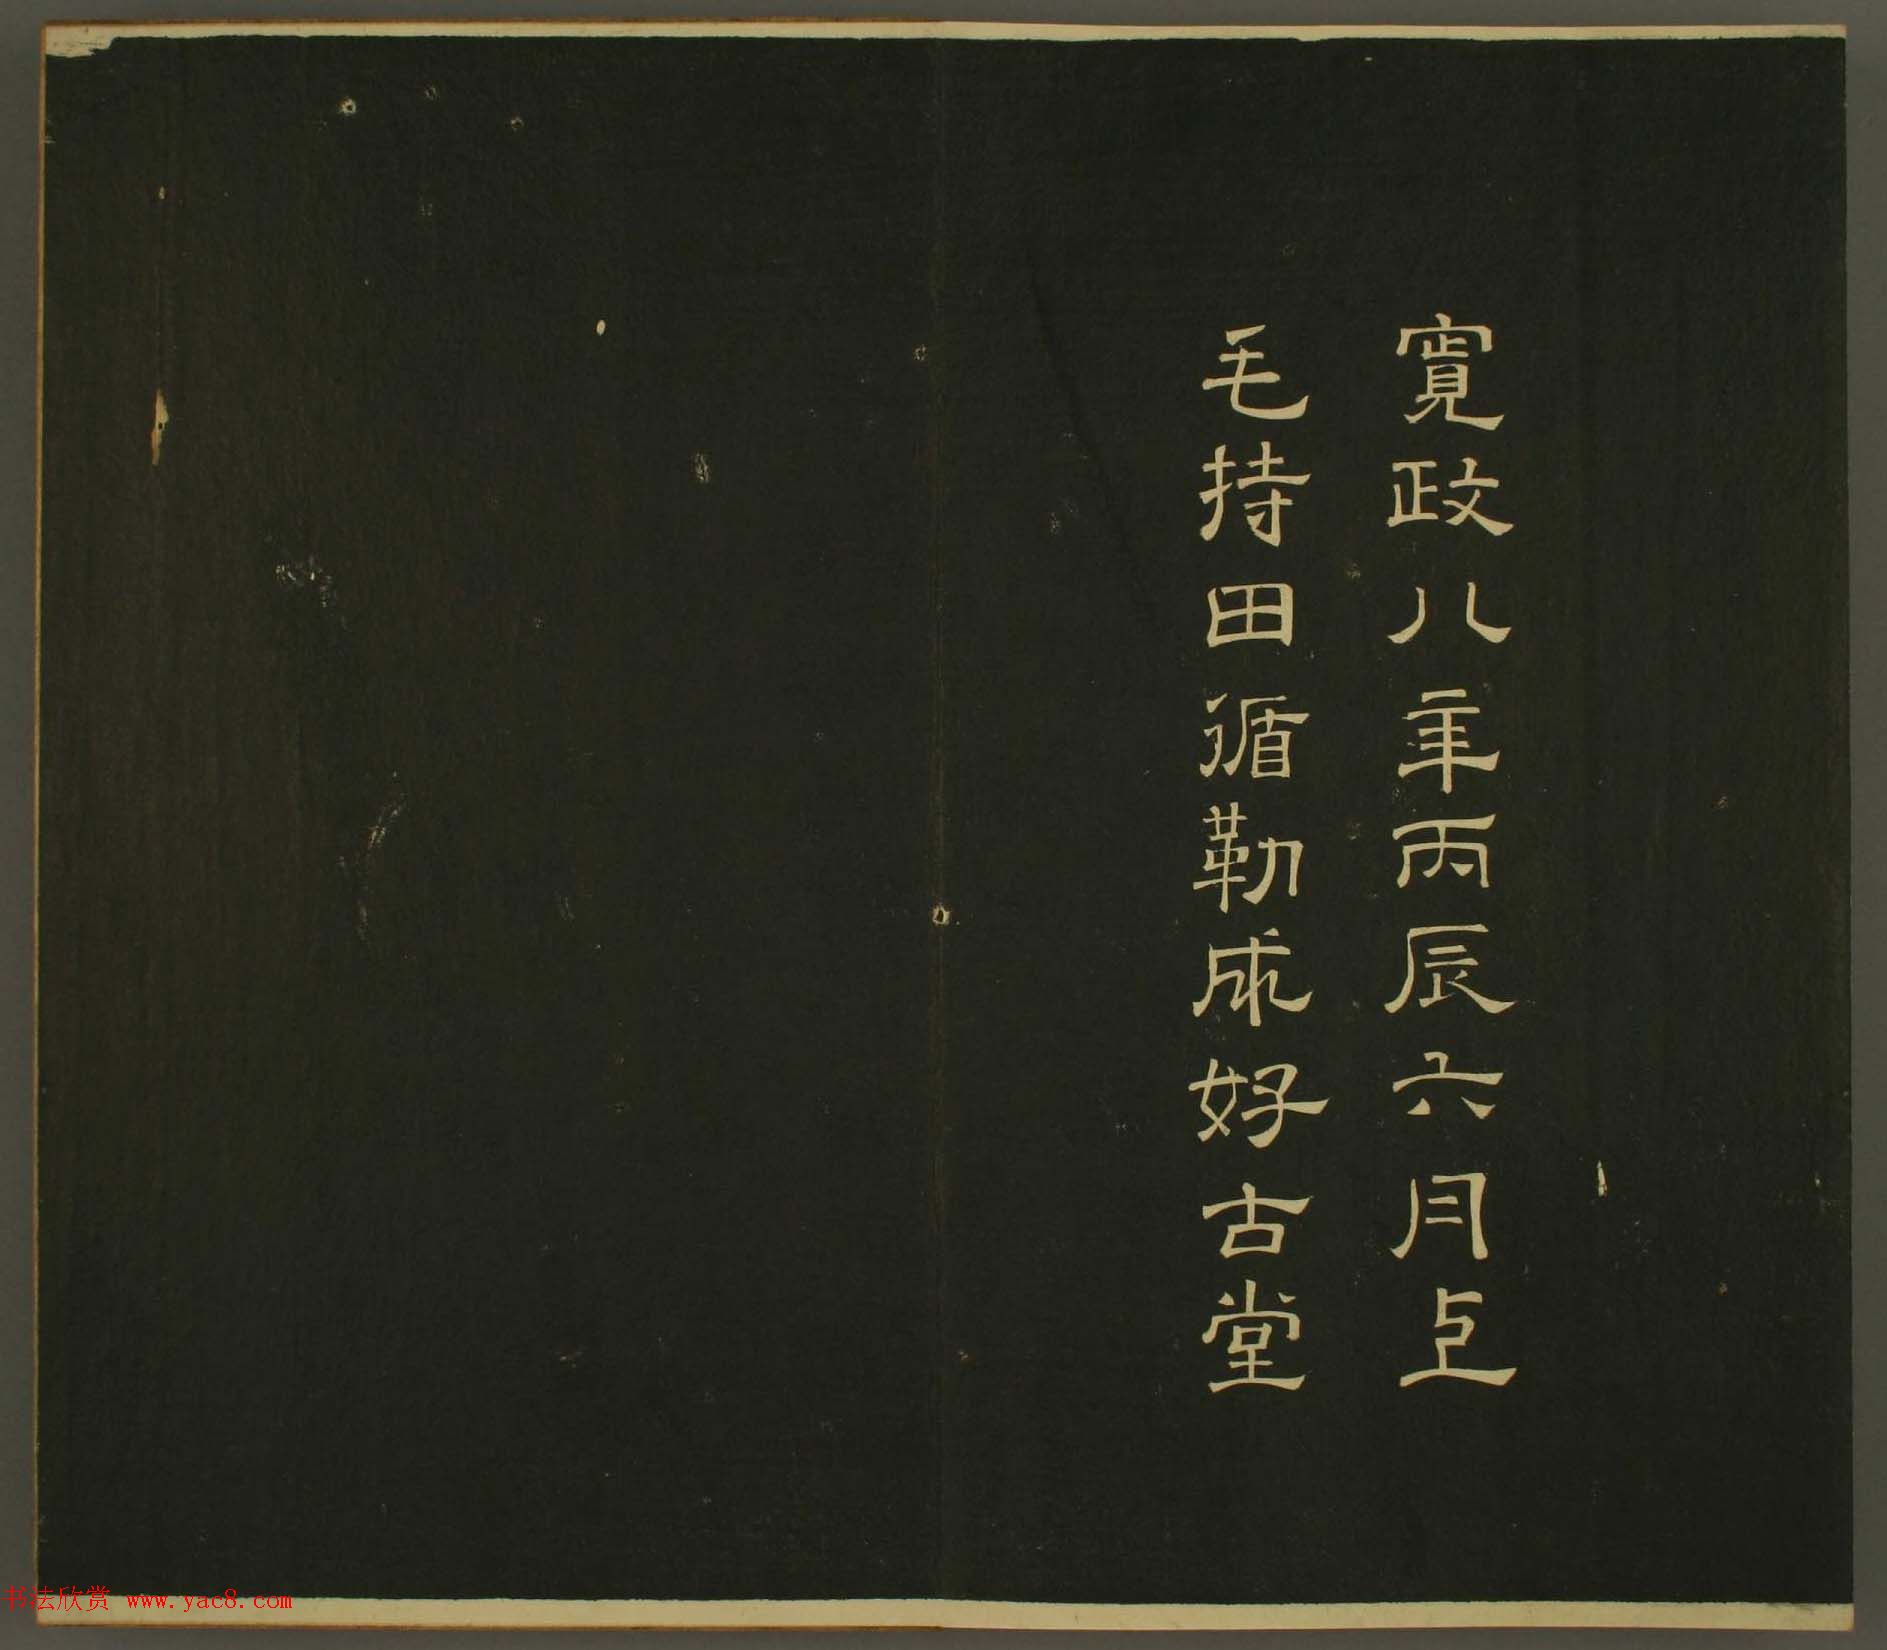 寛政八年丙辰六月上
毛持田循勒成好古堂
书法欣赏 www.yac8.com